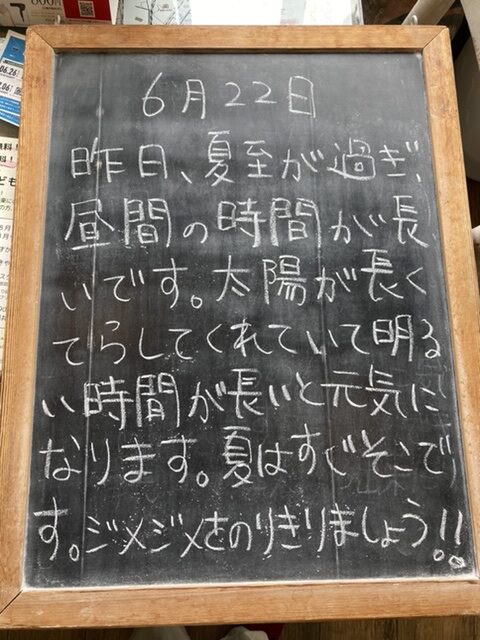 6月22日
昨日、夏至が過ぎ、
昼間の時間が長
いです。太陽が長く
てらしてくれていて明る
い時間が長いと元気に
なります。夏はすぐそこで
す。ジメジメをのりきりましょう!!